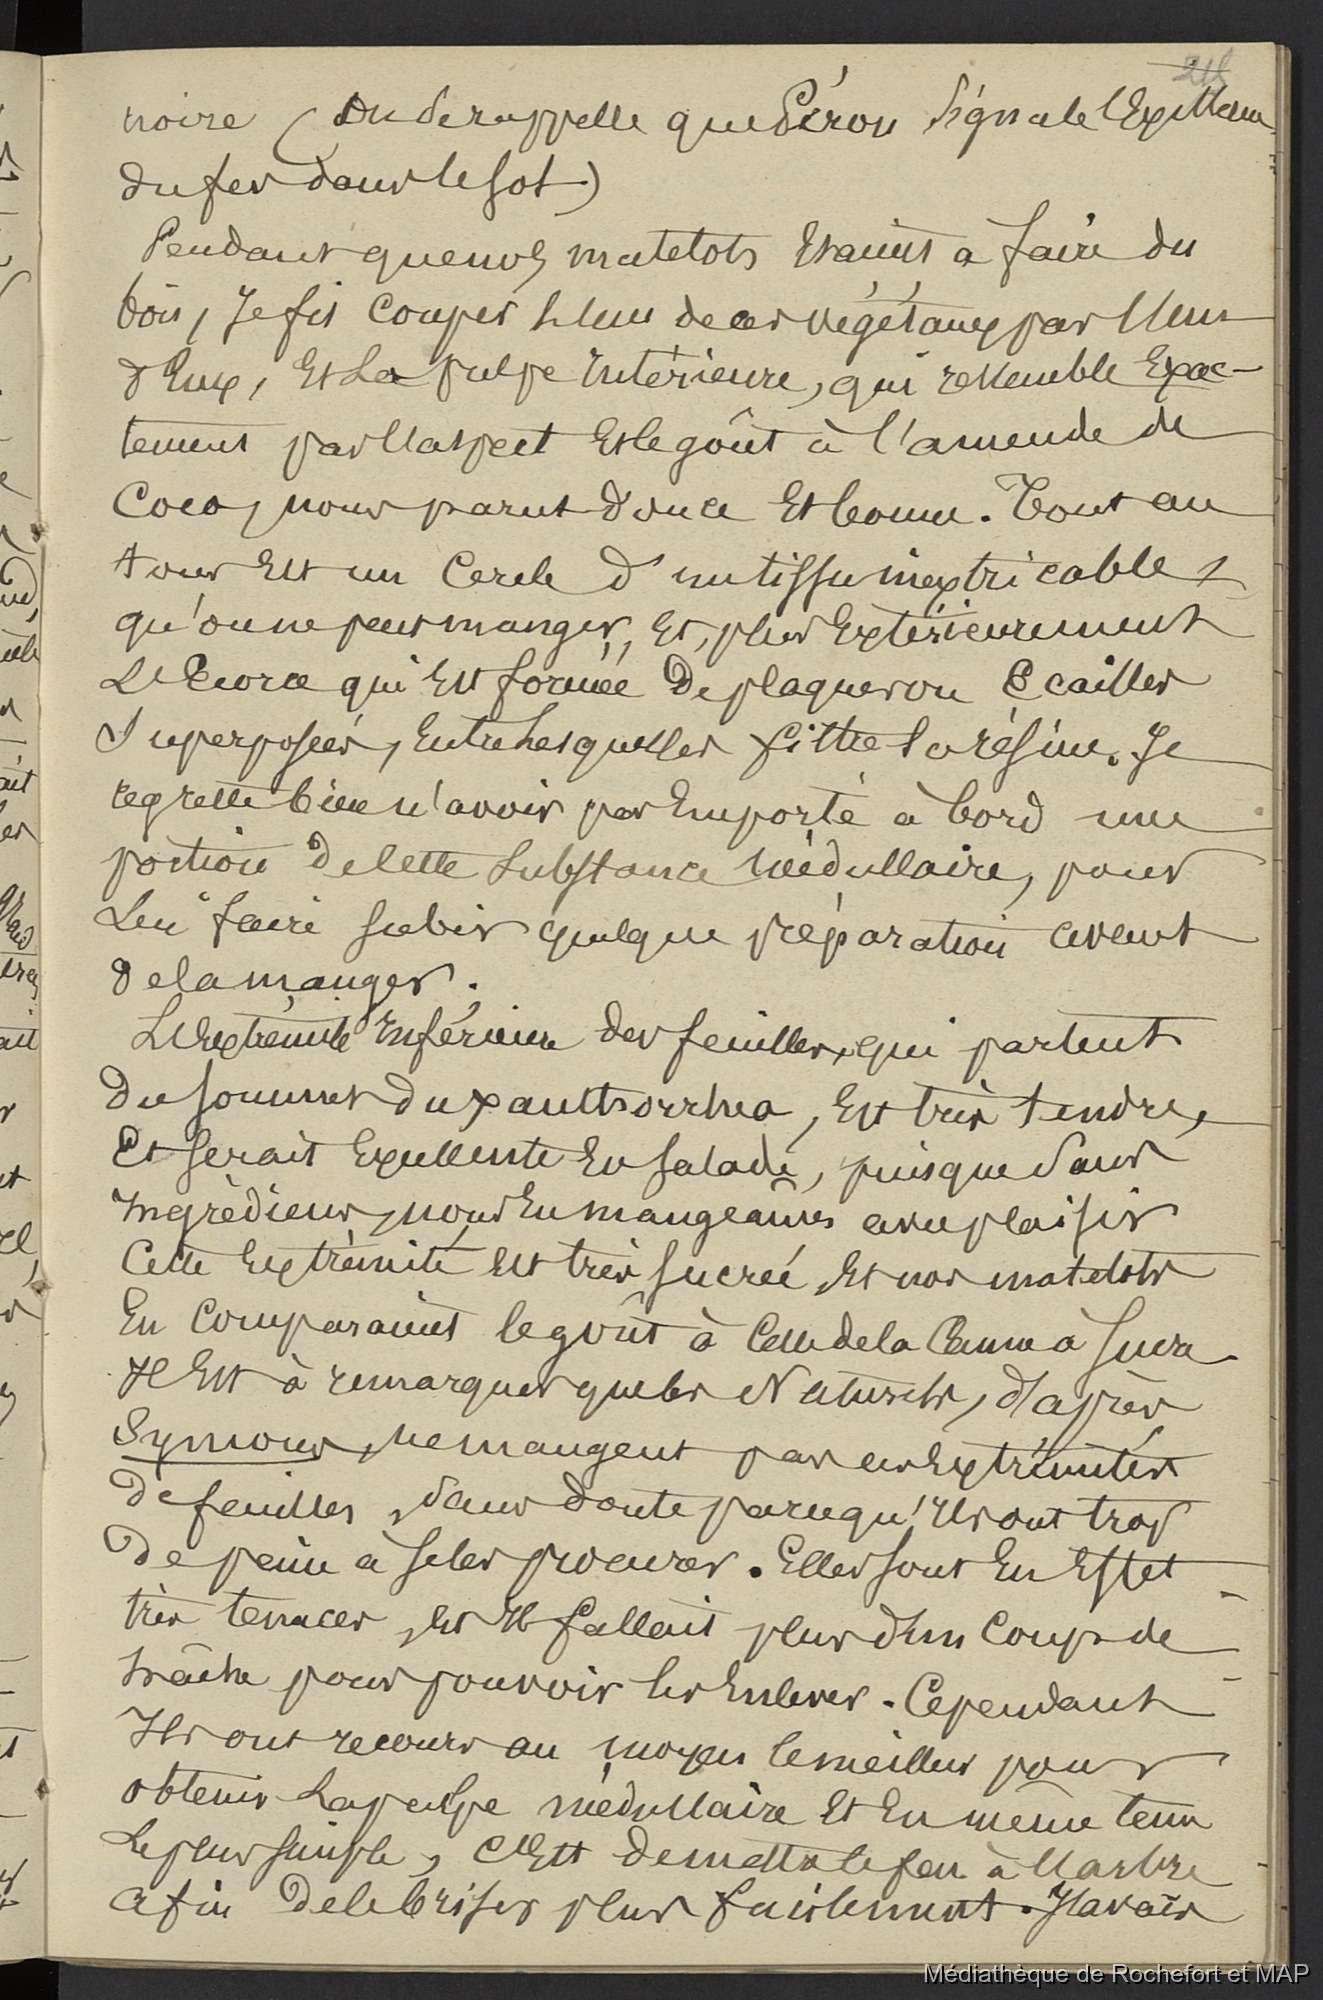 noire (On se rappelle que Péron signale l'Existence
du fer dans le sol)
Pendant que nos matelots Etaient à faire du
bois, Je fis couper l'un de ces végétaux par l'un
d'Eux, Et La pulpe Intérieure, qui ressemble Exac-
tement par l'aspect Et le goût à l'amende de
Coco, nous parut douce Et bonne. Tout au
tour Est un Cercle d'un tissu inextricable,
qu'on ne peut manger, Et, plus Extérieurement
L'Ecorce qui Est formée De plaques ou Ecailles
Superposées, Entre Lesquelles filtre la résine. Je
regrette bien n'avoir pas Emporté à bord une
portion De cette Substance Médullaire, pour
Lui faire subir quelque préparation avant
de la manger.
L'Extrémité Inférieure des feuilles, qui partent
Du sommet du xanthorrhea, Est très tendre,
Et serait Excellente En salade, puisque sans
Ingrédiens, nous En mangeâmes avec plaisir
Cette Extrémité Est très sucrée, Et nos matelots
En Comparaient le goût à Celle de la Canne à Sucre
Il Est à remarquer que les Naturels, d'après
Symour, ne mangent pas ces Extrémités
De feuilles, sans doute parce qu'Ils ont trop
De peine à se les procurer. Elles sont En Effet
très tenaces, Et Il fallait plus d'un Coup de
hâche pour pouvoir les Enlever. Cependant
Ils ont recours au moyen le meilleur pour
obtenir La pulpe médullaire Et En même tems
Le plus simple, C'Est De mettre le feu à l'arbre
afin De le briser plus facilement. J'avais
Médiathèque de Rochefort et MAP